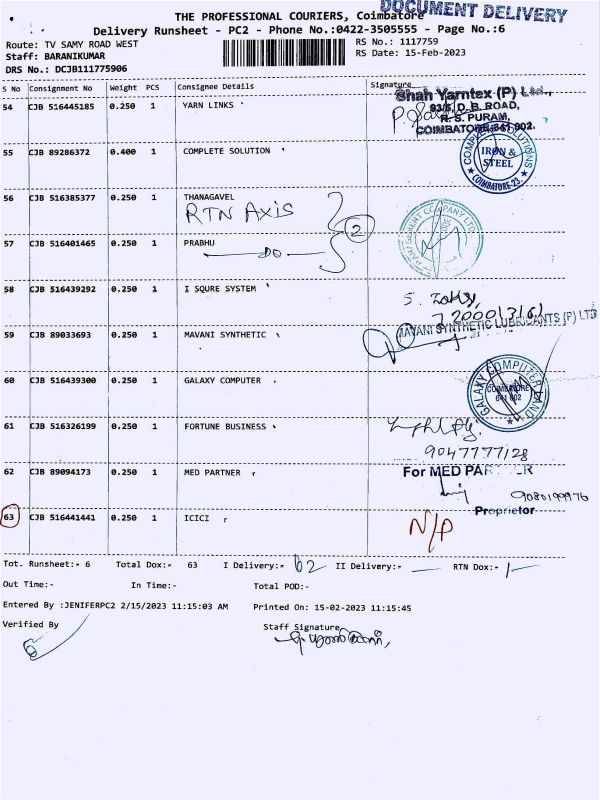 DOCUMENT DELIVERY
THE PROFESSIONAL COURIERS, Coimbatore
Delivery Runsheet - PC2 - Phone No.:0422-3505555 - Page No.:6
Route: TV SAMY ROAD WEST
RS No.: 1117759
Staff: BARANIKUMAR
RS Date: 15-Feb-2023
DRS No.: DCJB111775906
S No Consignment No Weight PCS Consignee Details Signature
54 CJB 516445185 0.250 1 YARN LINKS
Shah Yarntex (P) Ltd.,
93/5, D. B. ROAD,
R. S. PURAM,
COIMBATORE-641 002.
55 CJB 89286372 0.400 1 COMPLETE SOLUTION
COMPLETE SOLUTIONS
IRON &
STEEL
COIMBATORE-23.
56 CJB 516385377 0.250 1 THANAGAVEL
RTN AXIS
2
57 CJB 516401465 0.250 1 PRABHU
DO
58 CJB 516439292 0.250 1 I SQURE SYSTEM
59 CJB 89033693 0.250 1 MAVANI SYNTHETIC
MAVANI SYNTHETIC LUBRICANTS (P) LTD
60 CJB 516439300 0.250 1 GALAXY COMPUTER
GALAXY COMPUTER LAND
COIMBATORE
641 002
61 CJB 516326199 0.250 1 FORTUNE BUSINESS
9047777128
62 CJB 89094173 0.250 1 MED PARTNER
For MED PARTNER
9080199976
Proprietor
63 CJB 516441441 0.250 1 ICICI
N/P
Tot. Runsheet:- 6 Total Dox:- 63 I Delivery:- 62 II Delivery:- — RTN Dox:- 1
Out Time:- In Time:- Total POD:-
Entered By :JENIFERPC2 2/15/2023 11:15:03 AM Printed On: 15-02-2023 11:15:45
Verified By Staff Signature